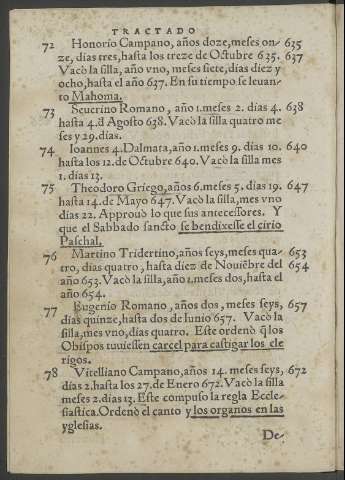 TRACTADO
72 Honorio Campano, años doze, meses on- 635
ze, dias tres, hasta los treze de Octubre 635. 637
Vacò la silla, año vno, meses siete, dias diez y
ocho, hasta el año 637. En su tiempo se leuan-
to Mahoma.
73 Seuerino Romano, año 1. meses 2. dias 4. 638
hasta 4. d̄ Agosto 638. Vacò la silla quatro me
ses y 29. dias.
74 Ioannes 4. Dalmata, año 1. meses 9. dias 10. 640
hasta los 12. de Octubre 640. Vacò la silla mes
1. dias 13.
75 Theodoro Griego, años 6. meses 5. dias 19. 647
hasta 14. de Mayo 647. Vacò la silla, mes vno
dias 22. Approuò lo que sus antecessores. Y
que el Sabbado sancto se bendixesse el cirio
Paschal.
76 Martino Tridertino, años seys, meses qua- 653
tro, dias quatro, hasta diez de Nouiẽbre del 654
año 653. Vacò la silla, año 1. meses dos, hasta el
año 654.
77 Eugenio Romano, años dos, meses seys, 657
dias quinze, hasta dos de Iunio 657. Vacò la
silla, mes vno, dias quatro. Este ordenò q̃ los
Obispos tuuiessen carcel para castigar los cle
rigos.
78 Vitelliano Campano, años 14. meses seys, 672
dias 2. hasta los 27. de Enero 672. Vacò la silla
meses 2. dias 13. Este compuso la regla Eccle-
siastica. Ordenò el canto y los organos en las
yglesias.
De-